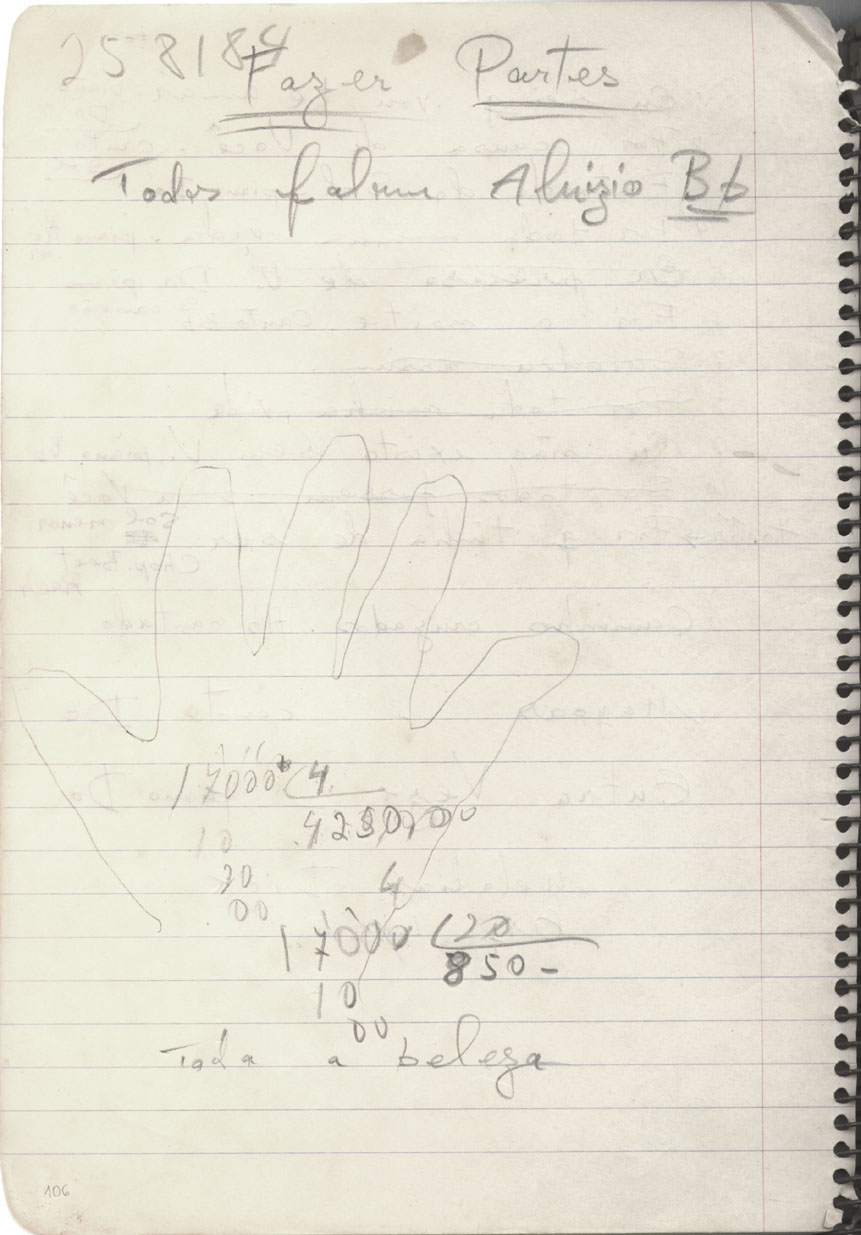 258184
Fazer Partes
Todos falam Aluizio Bb
17000 4
4250,00
10
20
00
4
17000 20
850-
10
00
Toda a beleza
106